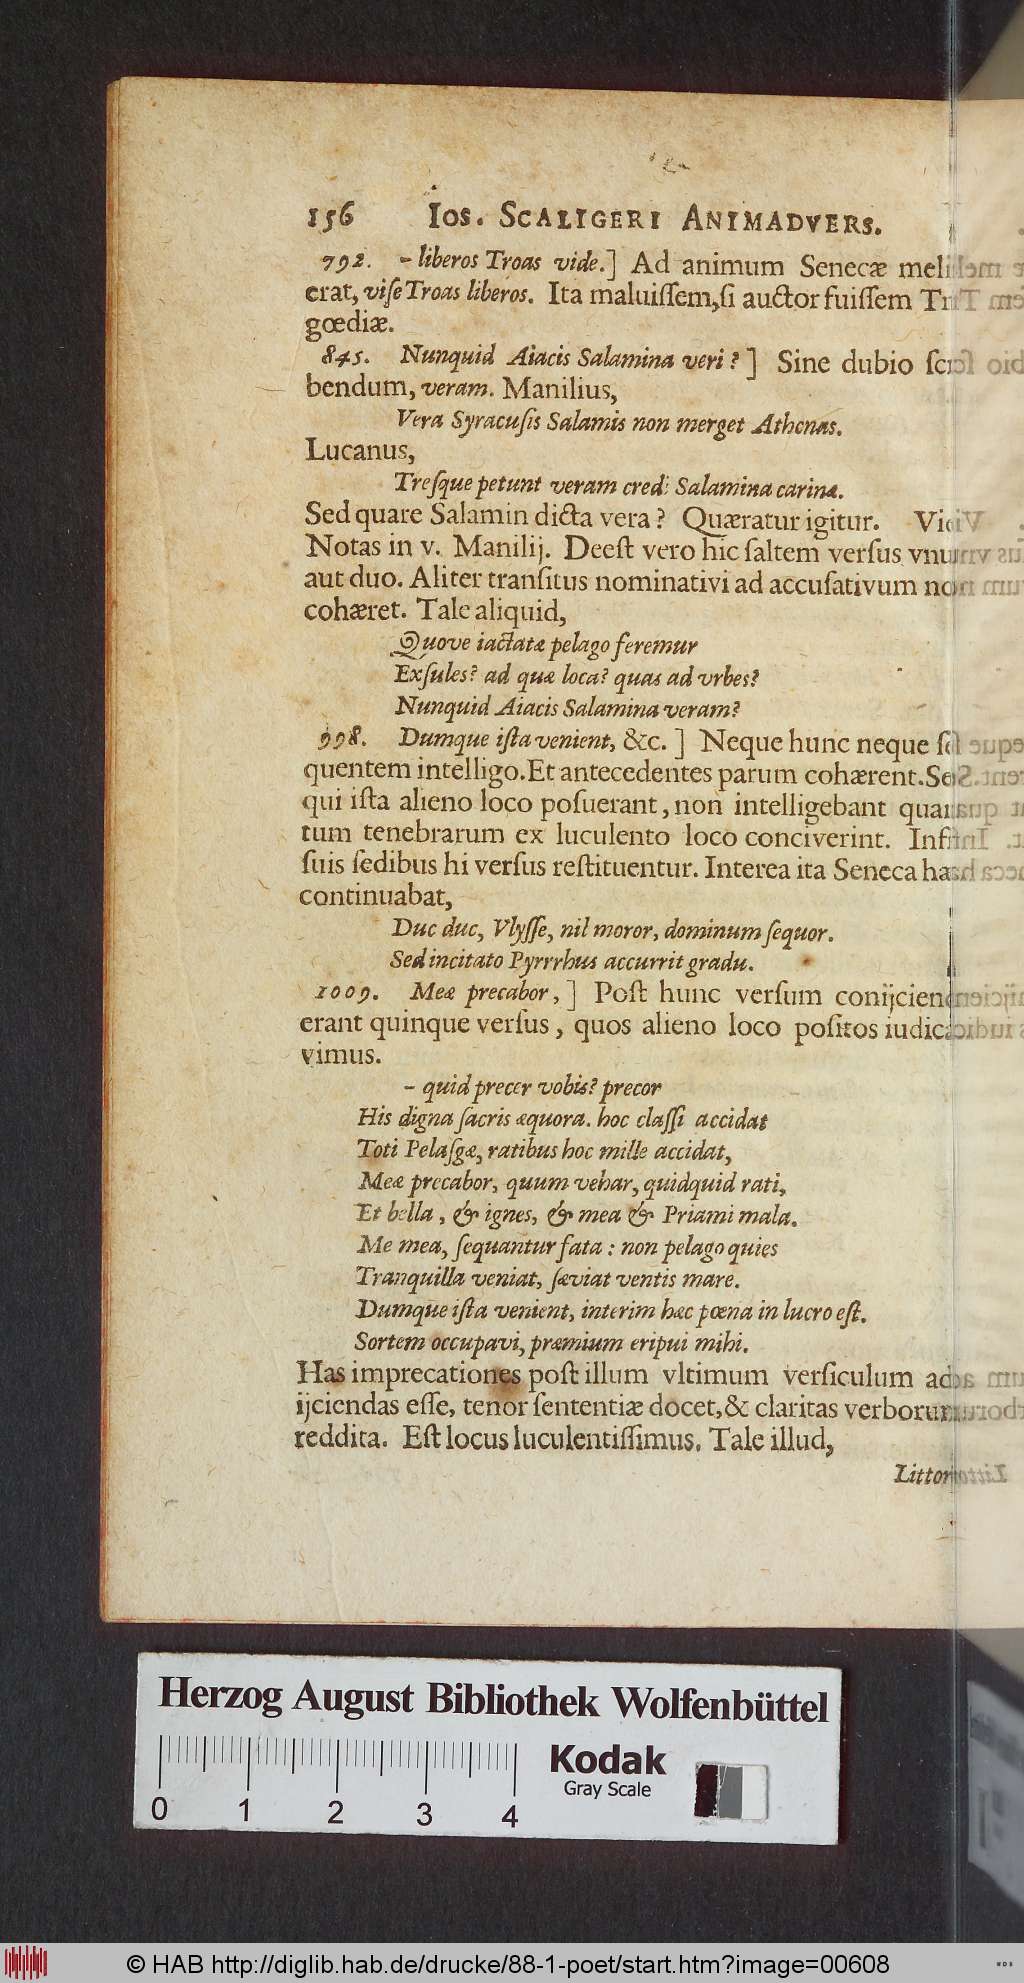 156 Ios. Scaligeri Animadvers.
792. – liberos Troas vide.] Ad animum Senecæ meli
erat, viſe Troas liberos. Ita maluiſſem, ſi auctor fuiſſem Tr
gœdiæ.
845. Nunquid Aiacis Salamina veri?] Sine dubio ſcri
bendum, veram. Manilius,
Vera Syracuſis Salamis non merget Athenas.
Lucanus,
Treſque petunt veram credi Salamina carinæ.
Sed quare Salamin dicta vera? Quæratur igitur. Vi
Notas in v. Manilij. Deeſt vero hic ſaltem verſus vnu
aut duo. Aliter tranſitus nominativi ad accuſativum non
cohæret. Tale aliquid,
Quove iactatæ pelago feremur
Exſules? ad quæ loca? quas ad vrbes?
Nunquid Aiacis Salamina veram?
998. Dumque iſta venient, &c.] Neque hunc neque ſe
quentem intelligo. Et antecedentes parum cohærent. Se
qui iſta alieno loco poſuerant, non intelligebant quan
tum tenebrarum ex luculento loco conciverint. Infra
ſuis ſedibus hi verſus reſtituentur. Interea ita Seneca hæc
continuabat,
Duc duc, Vlyſſe, nil moror, dominum ſequor.
Sed incitato Pyrrrhus accurrit gradu.
1009. Meæ precabor,] Poſt hunc verſum conijcien
erant quinque verſus, quos alieno loco poſitos iudica
vimus.
– quid precer vobis? precor
His digna ſacris æquora. hoc claſſi accidat
Toti Pelaſgæ, ratibus hoc mille accidat,
Meæ precabor, quum vehar, quidquid rati,
Et bella, & ignes, & mea & Priami mala.
Me mea, ſequantur fata: non pelago quies
Tranquilla veniat, ſæviat ventis mare.
Dumque iſta venient, interim hæc pœna in lucro eſt.
Sortem occupavi, præmium eripui mihi.
Has imprecationes poſt illum vltimum verſiculum ad
ijciendas eſſe, tenor ſententiæ docet, & claritas verborum
reddita. Eſt locus luculentiſſimus. Tale illud,
Littor
Herzog August Bibliothek Wolfenbüttel
Kodak
Gray Scale
0 1 2 3 4
© HAB http://diglib.hab.de/drucke/88-1-poet/start.htm?image=00608